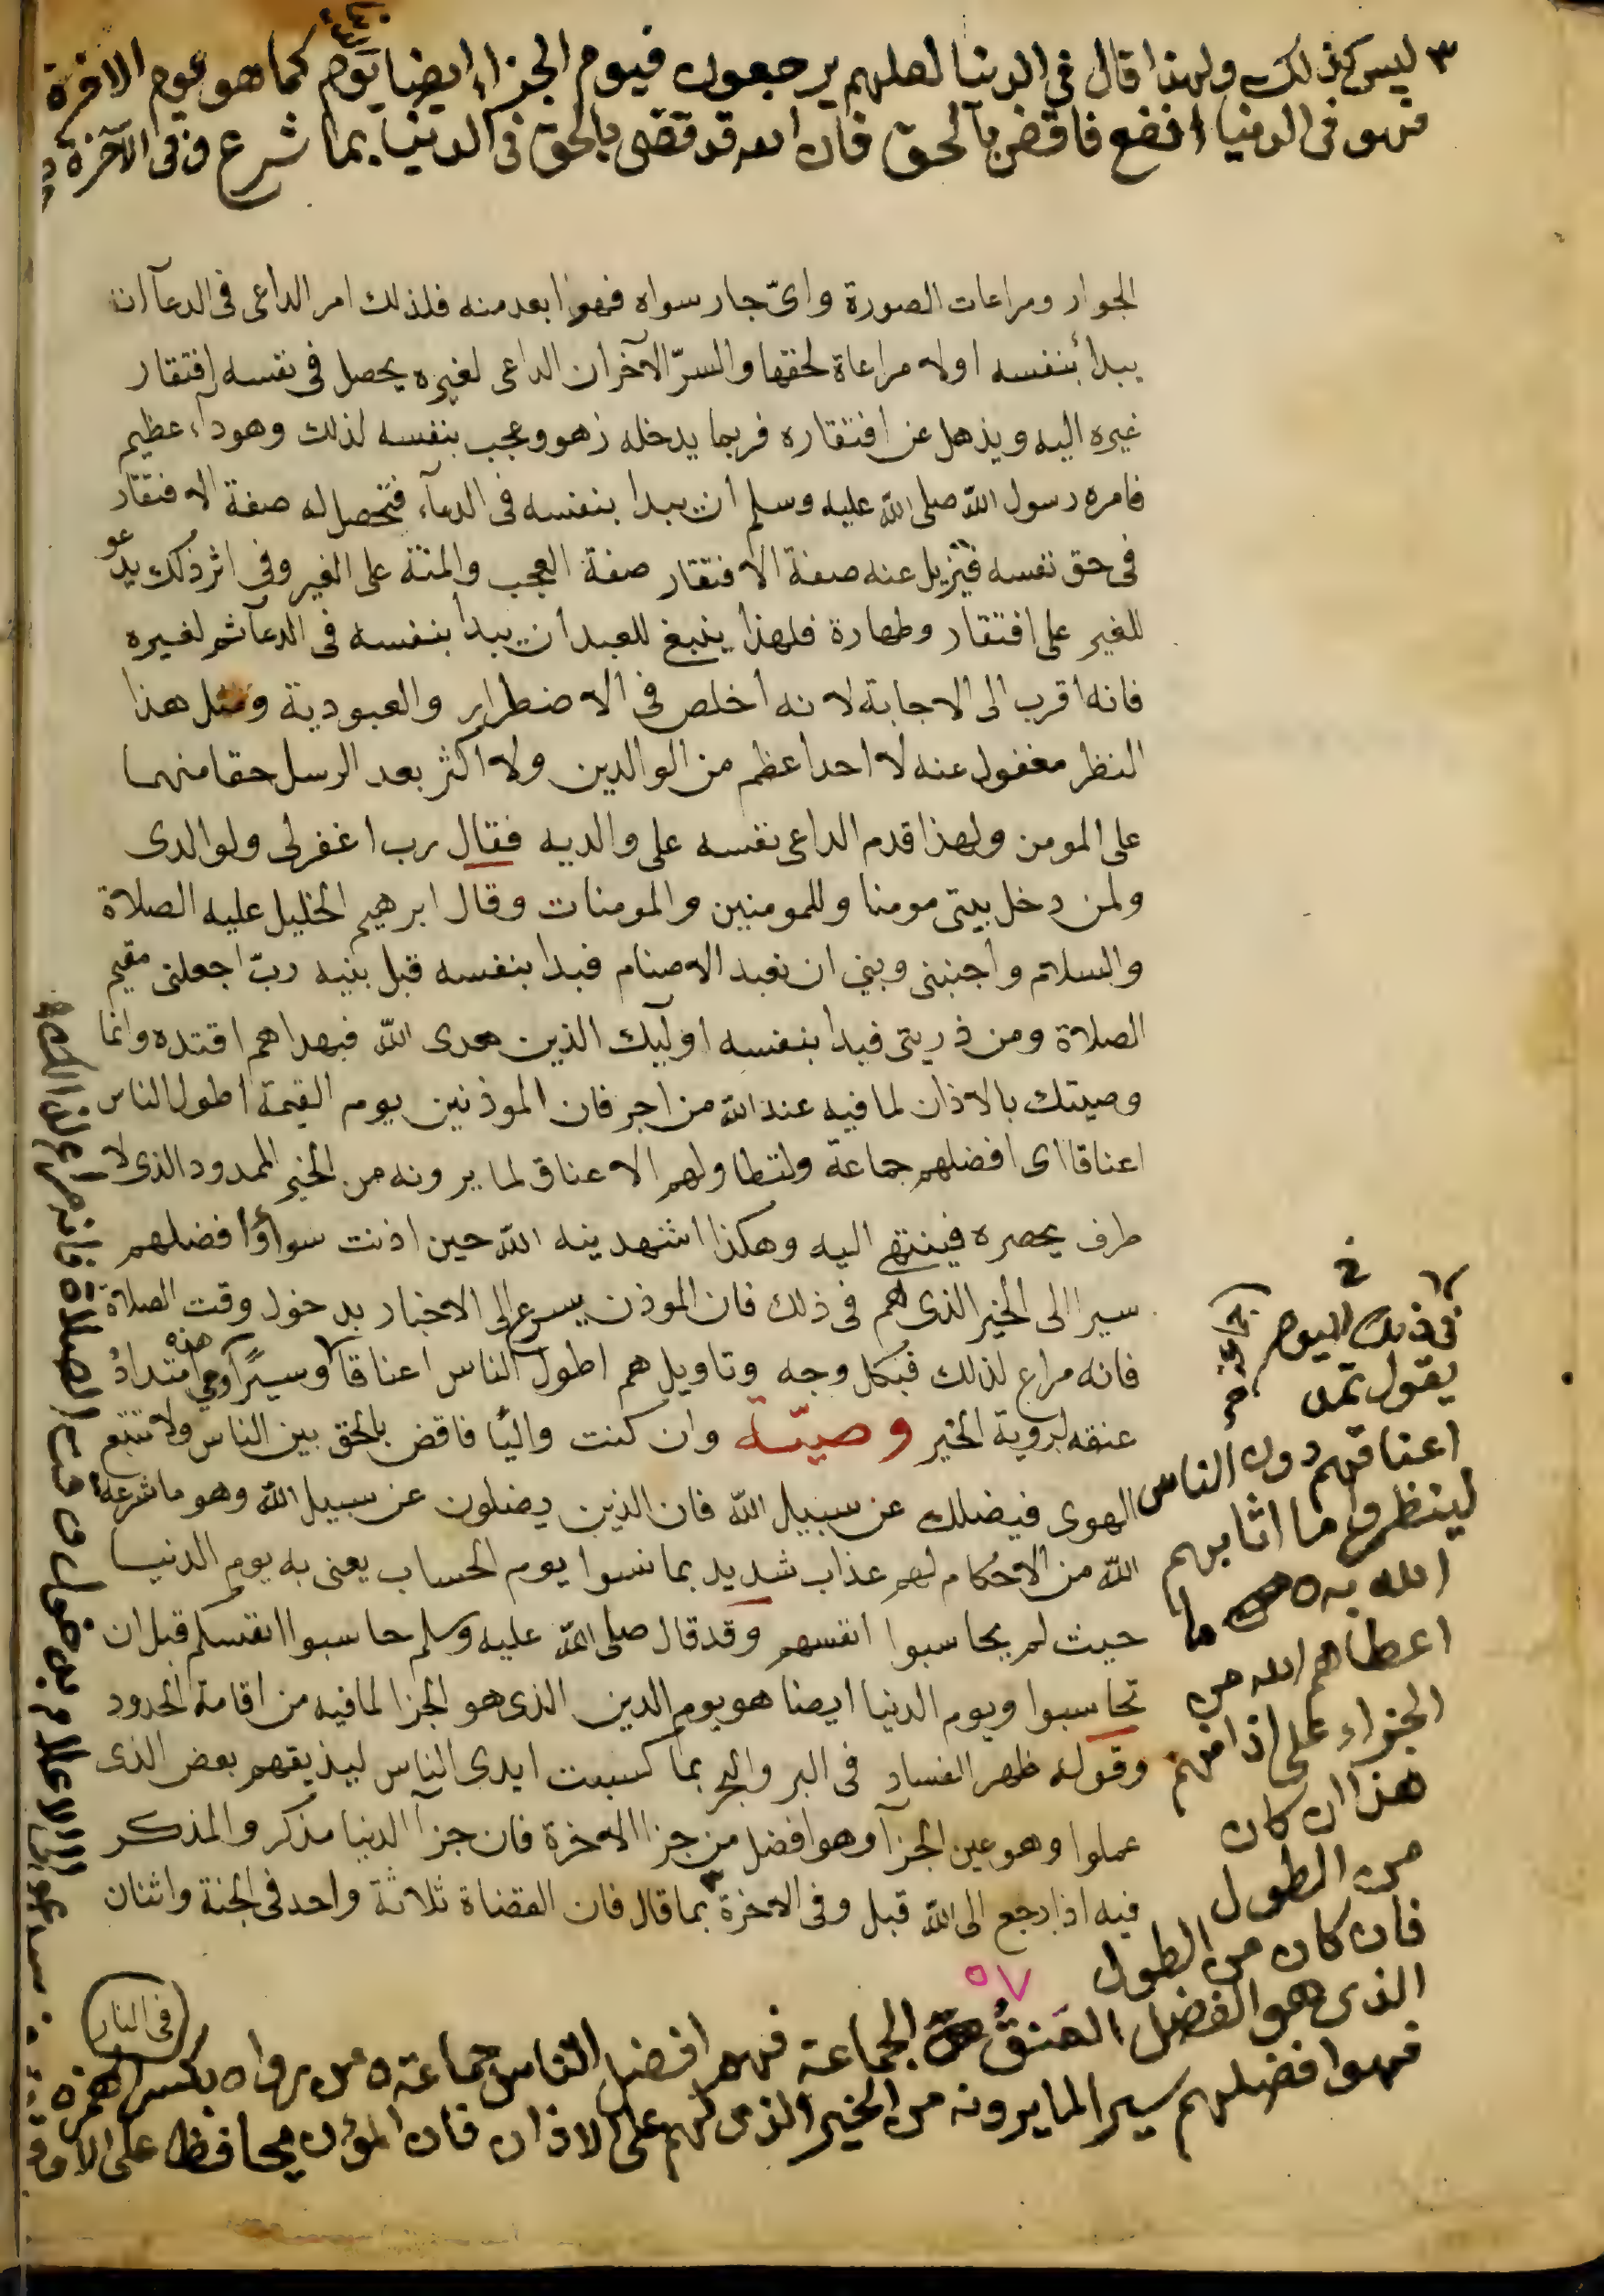 ٣ ليس كذلك ولهذا قال فى الدنيا لعلهم يرجعون فيوم الجزاء ايضا يوم كما هو يوم الاخرة
فهو فى الدنيا انفع فاقض بالحق فان الله قد قضى بالحق فى الدنيا بما شرع وفى الآخرة
الجوار ومراعات الصورة واىّ جار سواه فهو ابعد منه فلذلك امر الداعى فى الدعآ ان
يبدأ بنفسه اولا مراعاة لحقها والسرّ الآخر ان الداعى لغيره يحصل فى نفسه افتقار
غيره اليه ويذهل عن افتقاره فربما يدخله زهو وعجب بنفسه لذلك وهو دآء عظيم
فامره رسول الله صلى الله عليه وسلم ان يبدا بنفسه فى الدعآء فتحصل له صفة الافتقار
فى حق نفسه فتزيل عنه صفة الافتقار صفة العجب والمنة على الغير وفى اثر ذلك يدعو
للغير على افتقار وطهارة فلهذا ينبغ للعبد ان يبدا بنفسه فى الدعآ ثم لغيره
فانه اقرب الى الاجابة لانه اخلص فى الاضطرار والعبودية ومثل هذا
النظر مغفول عنه لا احد اعظم من الوالدين ولا اكثر بعد الرسل حقا منهما
على المومن ولهذا قدم الداعى نفسه على والديه فقال رب اغفر لى ولوالدى
ولمن دخل بيتى مومنا وللمومنين والمومنات وقال ابرهيم الخليل عليه الصلاة
والسلام واجنبنى وبني ان نعبد الاصنام فبدا بنفسه قبل بنيه ربّ اجعلنى مقيم
الصلاة ومن ذريتى فبدا بنفسه اوليٓك الذين هدى الله فبهداهم اقتده وانما
وصيتك بالاذان لما فيه عند الله من اجر فان الموذنين يوم القيمة اطول الناس
اعناقا اى افضلهم جماعة ولتطاولهم الاعناق لما يرونه من الخير الممدود الذى لا
طرف يحصره فينتهى اليه وهكذا اشهدينه الله حين اذنت سوا وافضلهم
سيرا الى الخير الذى لهم فى ذلك فان الموذن يسرع الى الاخبار بدخول وقت الصلاة
فانه مراع لذلك فبكل وجه وتاويل هم اطول الناس اعناقا وسيرًا وفى هذه امتدادُ
عنقه لروية الخير وصيّة وان كنت واليًا فاقض بالحق بين الناس ولا تتبع
الهوى فيضلك عن سبيل الله فان الذين يضلون عن سبيل الله وهو ما شرعه
الله من الاحكام لهم عذاب شديد بما نسوا يوم الحساب يعنى به يوم الدنيا
حيث لم يحاسبوا انفسهم وقد قال صلى الله عليه وسلم حاسبوا انفسكم قبل ان
تحاسبوا ويوم الدنيا ايضا هو يوم الدين الذى هو الجزا لما فيه من اقامة الحدود
وقوله ظهر الفساد فى البر والبحر بما كسبت ايدى الناس ليذيقهم بعض الذى
عملوا وهو عين الجزآ وهو افضل من جزا الاخرة فان جزآ الدنيا مذكر والمذكر
فيه اذا رجع الى الله قبل وفى الاخرة بما قال فان القضاة ثلاثة واحد فى الجنة واثنان
فى النار
٥٧
فى ذلك اليوم
يقول تمد
اعناقهم دون الناس
لينظروا ما اثابهم
الله به
اعطاهم الله من
الجزاء على اذانهم
هذا ان كان
من الطول
فان كان من الطول
الذى هو الفضل العنقُ الجماعة فهم افضل الناس جماعة ومن رواه بكسر الهمزة
فهو افضلهم سيرا لما يرونه من الخير الذى لهم على الاذان فان المؤذن محافظ على الاوقات